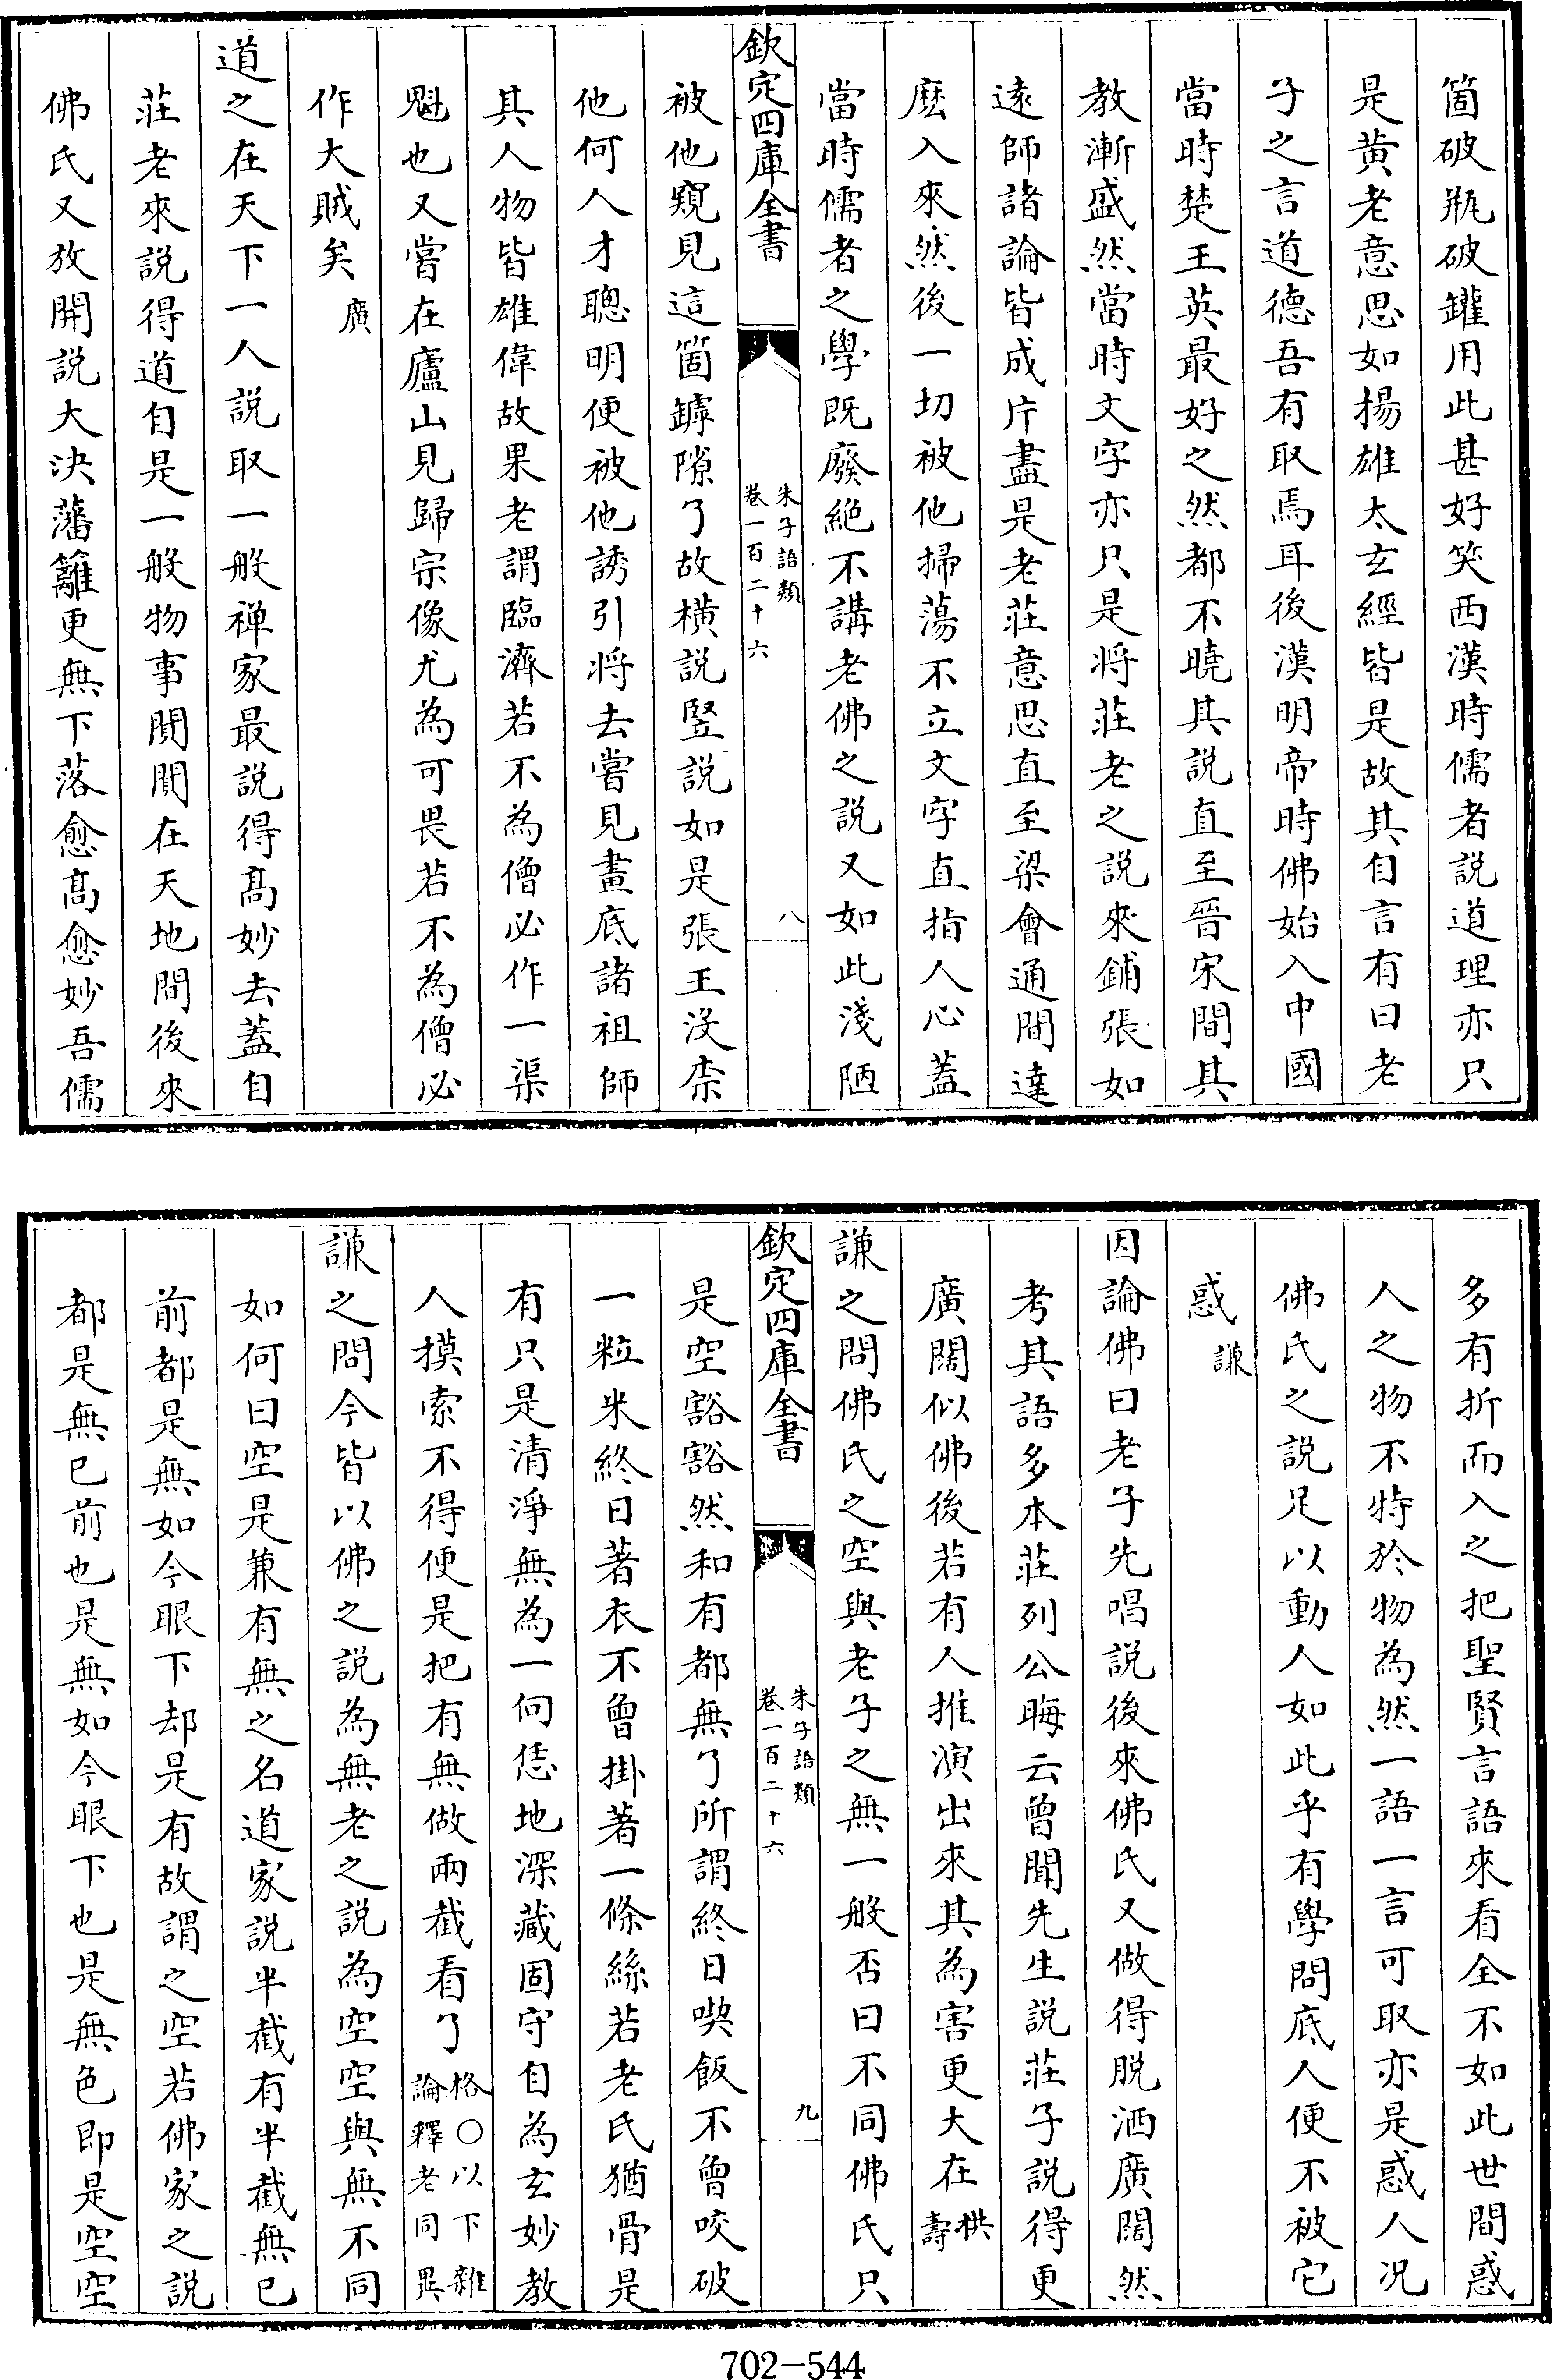 箇破瓶破罐用此甚好笑西漢時儒者説道理亦只
是黄老意思如揚雄太玄經皆是故其自言有曰老
子之言道德吾有取焉耳後漢明帝時佛始入中國
當時楚王英最好之然都不曉其説直至晉宋間其
教漸盛然當時文字亦只是將莊老之説來鋪張如
逺師諸論皆成片盡是老莊意思直至梁會通間達
麽入來然後一切被他掃蕩不立文字直指人心蓋
當時儒者之學既廢絶不講老佛之説又如此淺陋
欽定四庫全書
朱子語類
卷一百二十六
八
被他窺見這箇罅隙了故横説豎説如是張王没柰
他何人才聰明便被他誘引将去嘗見畫底諸祖師
其人物皆雄偉故果老謂臨濟若不為僧必作一渠
魁也又嘗在廬山見歸宗像尤為可畏若不為僧必
作大賊矣廣
道之在天下一人説取一般禅家最説得髙妙去蓋自
莊老來説得道自是一般物事閴閴在天地間後來
佛氏又放開説大决藩籬更無下落愈髙愈妙吾儒
多有折而入之把聖賢言語來看全不如此世間惑
人之物不特於物為然一語一言可取亦是惑人况
佛氏之説足以動人如此乎有學問底人便不被它
惑謙
因論佛曰老子先唱説後來佛氏又做得脱洒廣闊然
考其語多本莊列公晦云曾聞先生説莊子説得更
廣闊似佛後若有人推演出來其為害更大在拱壽
謙之問佛氏之空與老子之無一般否曰不同佛氏只
欽定四庫全書
朱子語類
卷一百二十六
九
是空豁豁然和有都無了所謂終日喫飯不曾咬破
一粒米終日著衣不曾掛著一條絲若老氏猶骨是
有只是清淨無為一向恁地深藏固守自為玄妙教
人摸索不得便是把有無做兩截看了格〇以下雜論釋老同異
謙之問今皆以佛之説為無老之説為空空與無不同
如何曰空是兼有無之名道家説半截有半截無已
前都是無如今眼下却是有故謂之空若佛家之説
都是無已前也是無如今眼下也是無色即是空空
702-544